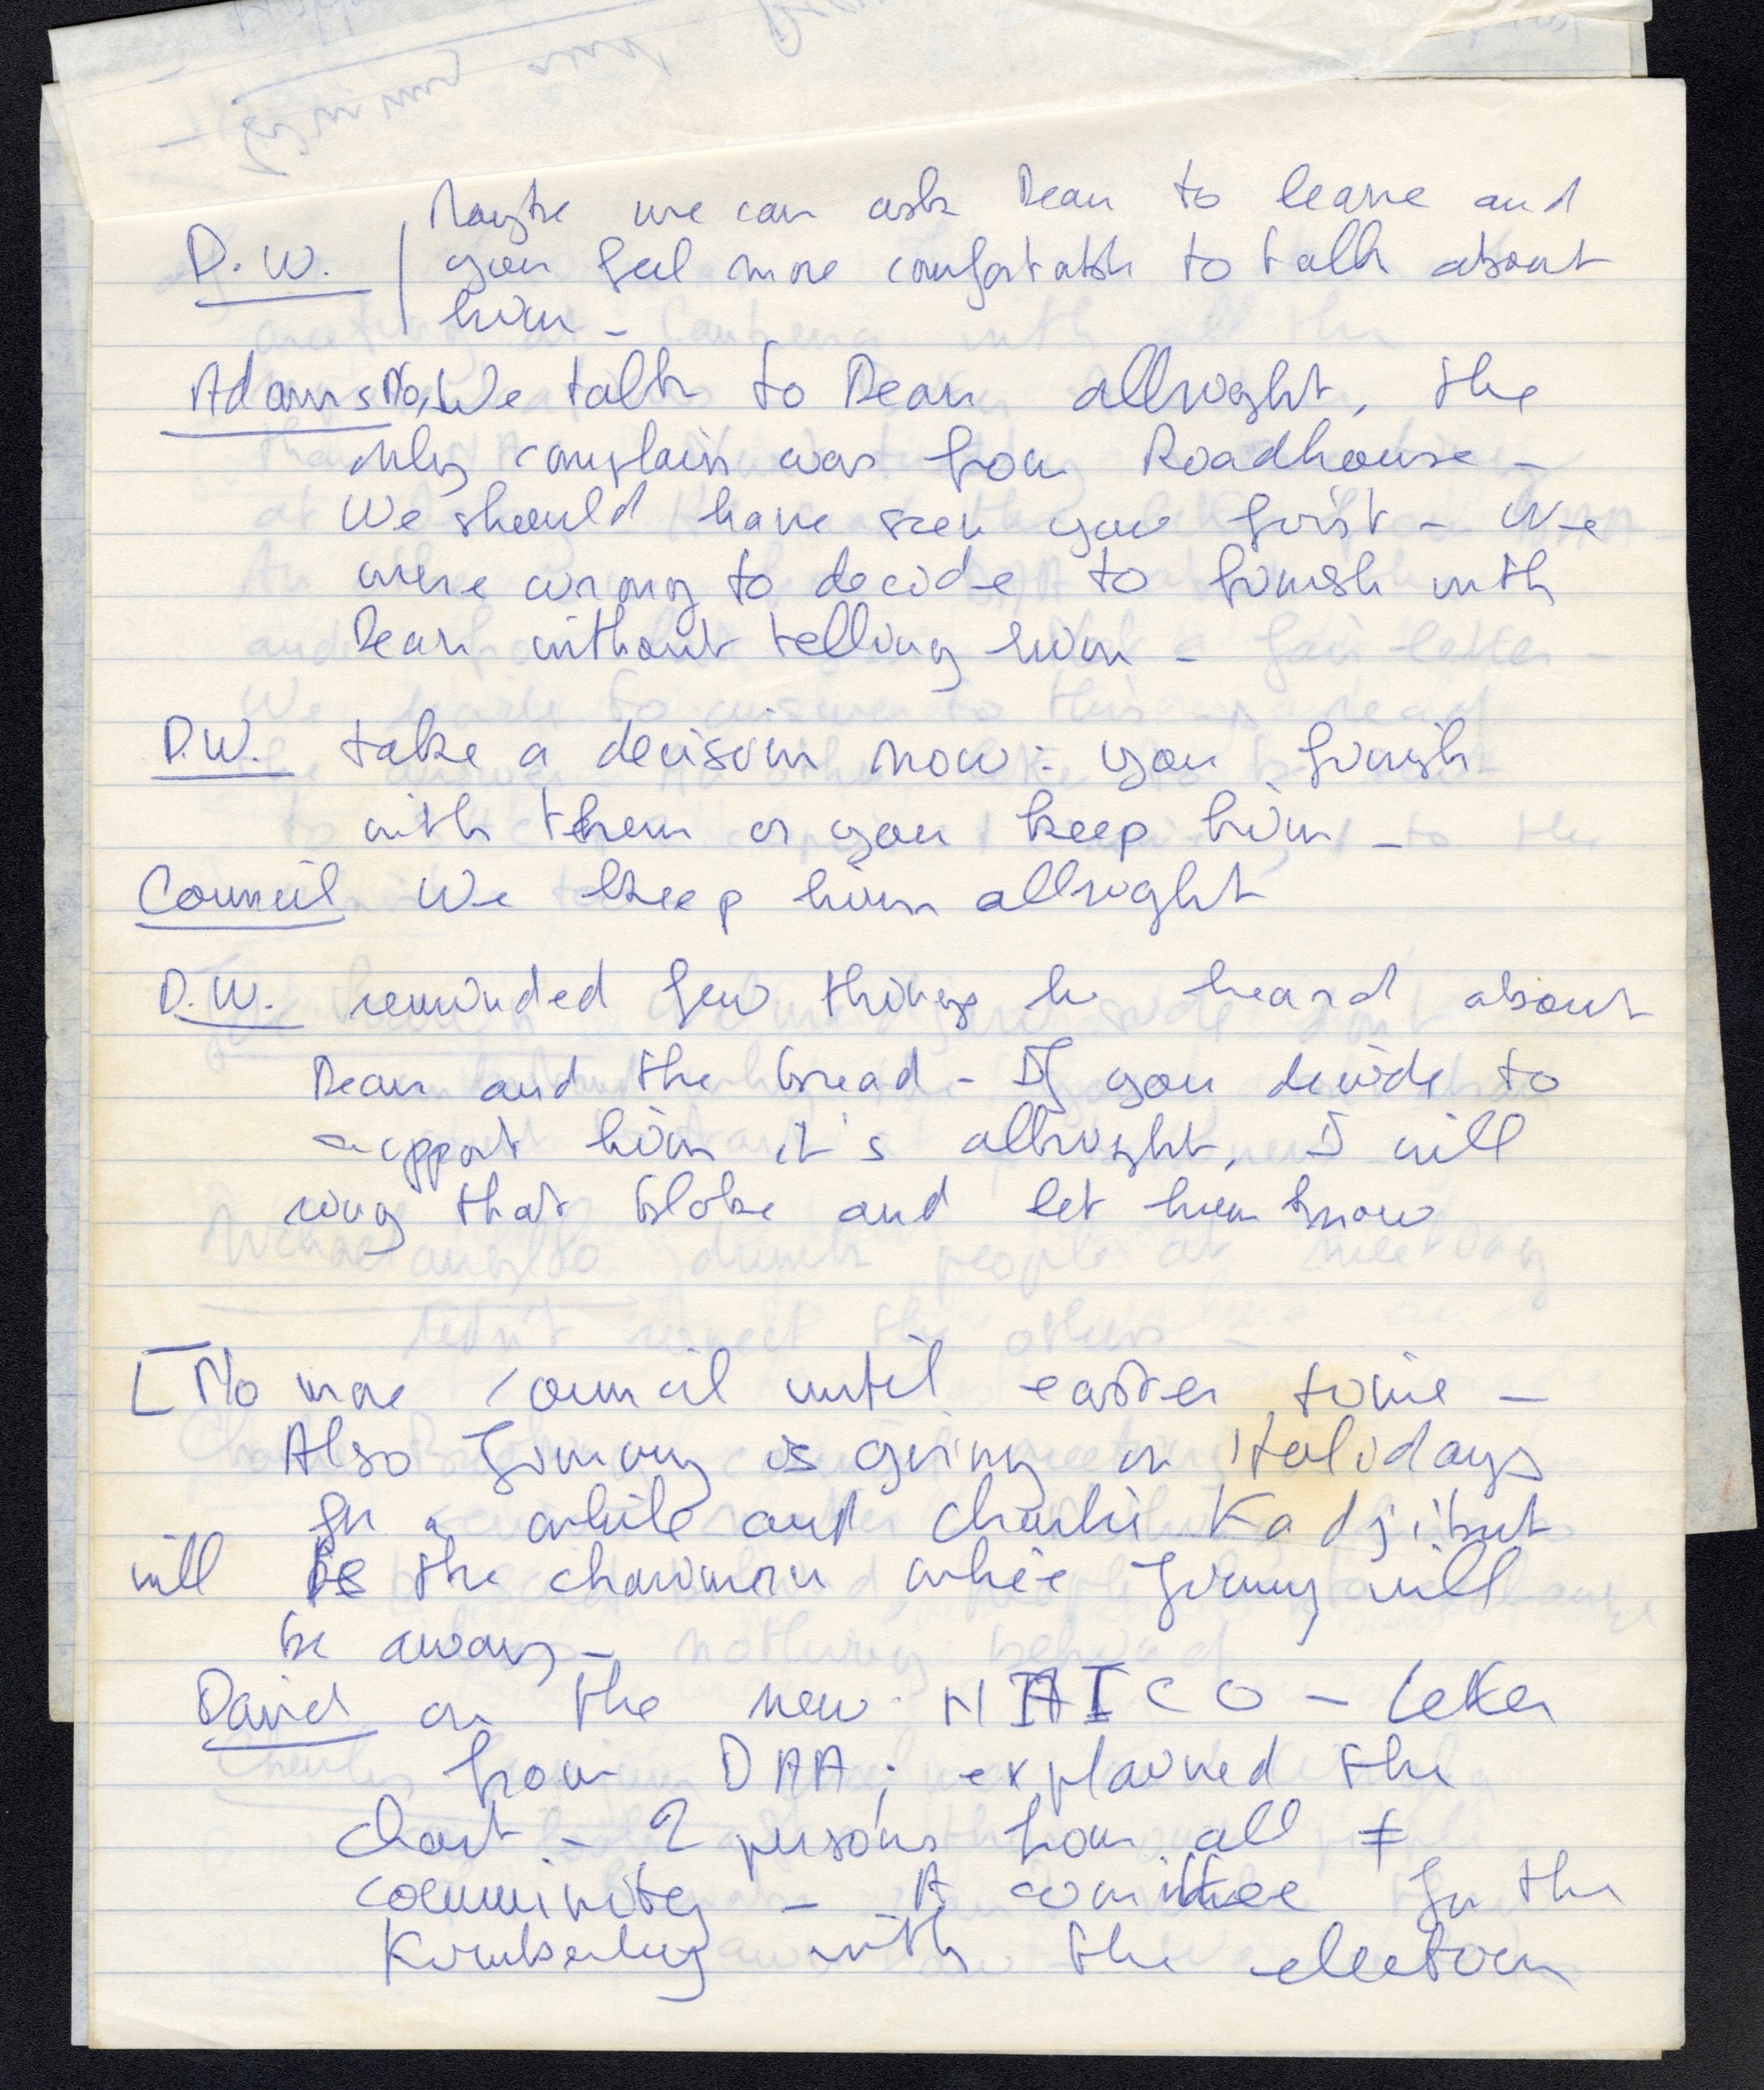 Maybe we can ask Dean to leave and
D.W. you feel more comfortable to talk about
him -
Adams No, We talk to Dean allright, the
only complain was from Roadhouse -
We should have seen you first - We
were wrong to decide to finish with
Dean without telling him -
D.W. take a decision now: you finish
with them or you keep him -
Council We keep him allright
D.W. reminded few things he heard about
Dean and the bread - If you decide to
support him it's allright, I will
ring that bloke and let him know
No more council until easter time -
Also Jimmy is going on Holidays
for a while and Charlie Kadjibut
will be the chairman while Jimmy will
be away -
David on the new NAICO - letter
from DAA; explained the
chart - 2 persons from all ≠
community - A comittee for the
Kimberley with the election